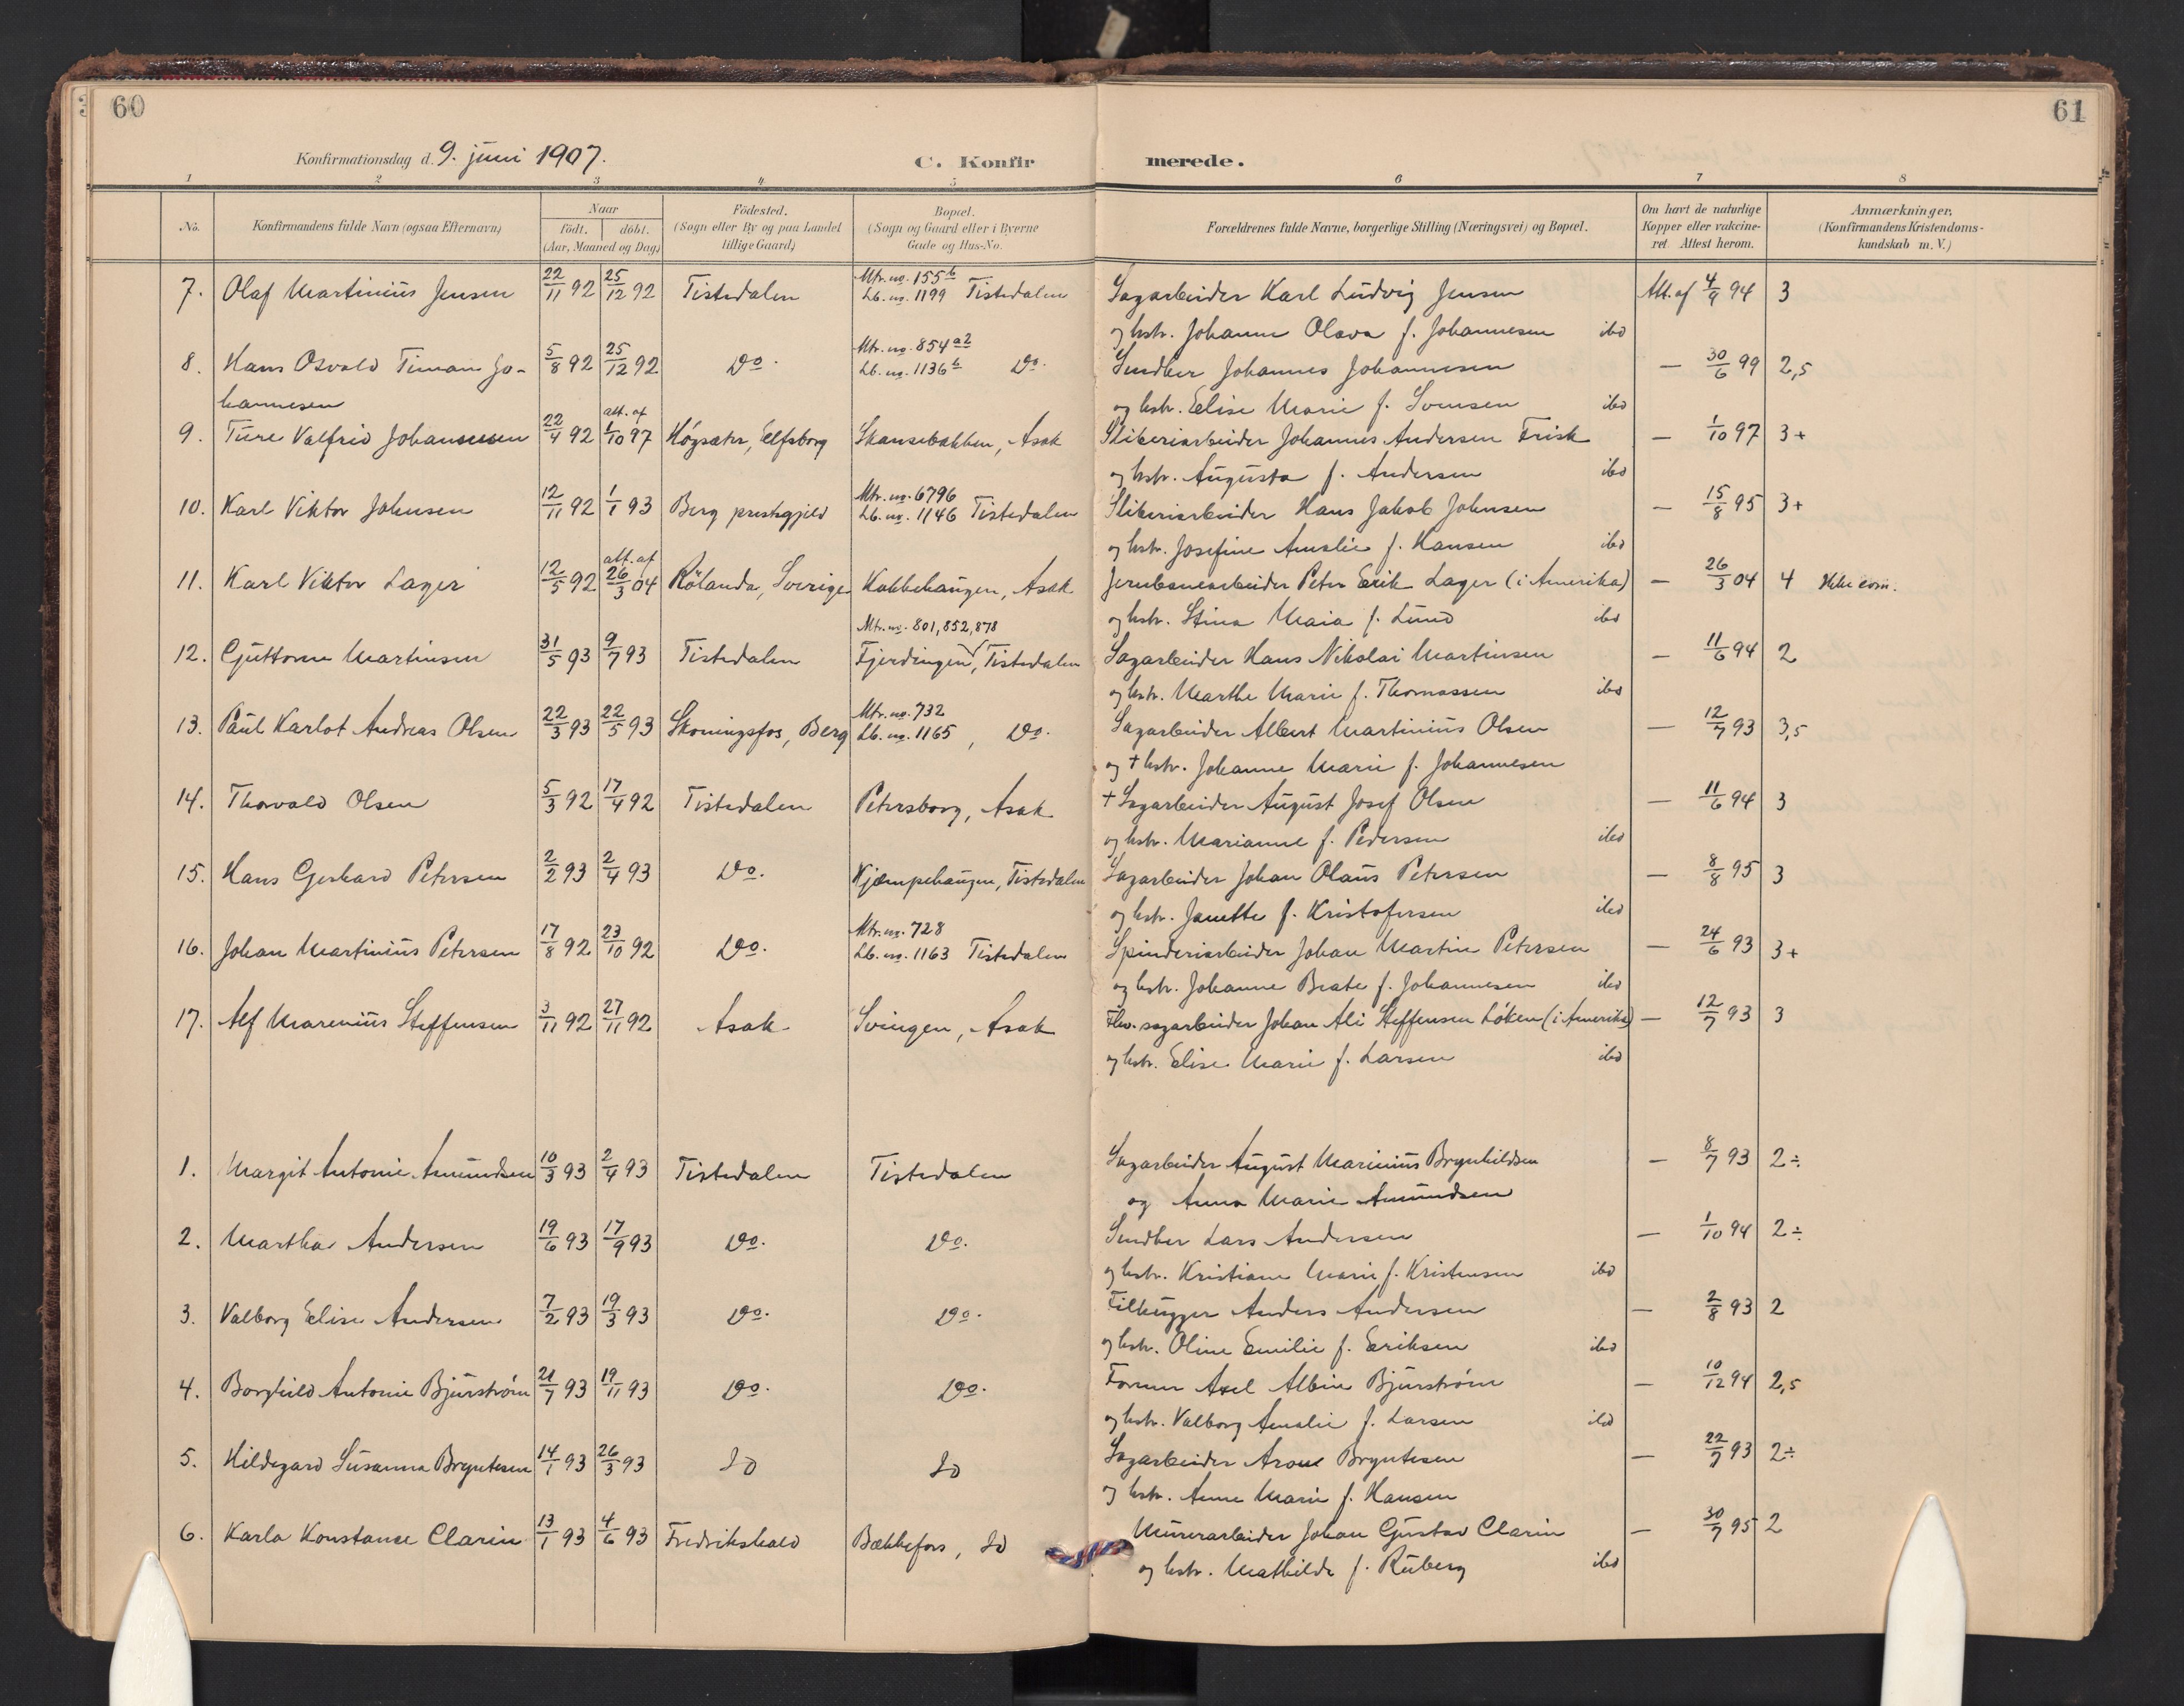 60
61
Konfirmationsdag d. 9. juni 1907.
C. Konfir
merede.
1 2 3 4 5 6 7 8
No.
Konfirmandens fulde Navn (ogsaa Efternavn)
Naar
födt. döbt.
(Aar, Maaned og Dag)
Födested.
(Sogn eller By og paa Landet
tillige Gaard)
Bopæl.
(Sogn og Gaard eller i Byerne
Gade og Hus-No.
Forældrenes fulde Navne, borgerlige Stilling (Næringsvei) og Bopæl.
Om havt de naturlige
Kopper eller vakcine-
ret. Attest herom.
Anmærkninger,
(Konfirmandens Kristendoms-
kundskab m. V.)
Mtr. no. 155b
7. Olaf Martinius Jensen 22/11 92 25/12 92 Tistedalen Lb. no. 1199 Tistedalen Sagarbeider Karl Ludvig Jensen Att. af 4/9 94 3
og hstr. Johanne Olava f. Johannesen ibd
Mtr. no. 854a2
8. Hans Osvald Timan Jo- 5/8 92 25/12 92 Do. Lb. no. 1136b Do. Smedber Johannes Johannesen — 30/6 99 2,5
hannesen og hstr. Elise Marie f. Svensen ibd
att. af
9. Ture Valfrid Johannesen 22/4 92 1/10 97 Högsæter, Elfsborg Skansebakken, Asak Sliberiarbeider Johannes Andersen Frisk — 1/10 97 3+
og hstr. Augusta f. Andersen ibd
Mtr. no. 6796
10. Karl Viktor Johnsen 12/11 92 1/1 93 Berg prestegjeld Lb. no. 1146 Tistedalen Sliberiarbeider Hans Jakob Johnsen — 15/8 95 3+
og hstr. Josefine Amalie f. Hansen ibd
att. af
11. Karl Viktor Lager 12/5 92 26/3 04 Rölanda, Sverige Kakkehaugen, Asak Jernbanearbeider Peter Erik Lager (i Amerika) — 26/3 04 4 Ikke com.
og hstr. Stina Maia f. Lund ibd
Mtr. no. 801, 852, 878
12. Guttorm Martinsen 31/5 93 9/7 93 Tistedalen Fjerdingen, Tistedalen Sagarbeider Hans Nikolai Martinsen — 11/6 94 2
og hstr. Marthe Marie f. Thomassen ibd
Mtr. no. 732
13. Paul Karlot Andreas Olsen 22/3 93 22/5 93 Skoningsfos, Berg Lb. no. 1165, Do. Sagarbeider Albert Martinius Olsen — 12/7 93 3,5
og + hstr. Johanne Marie f. Johannesen
14. Thorvald Olsen 5/3 92 17/4 92 Tistedalen Petersborg, Asak + Sagarbeider August Josef Olsen — 11/6 94 3
og hstr. Marianne f. Pedersen ibd
15. Hans Gerhard Petersen 2/2 93 2/4 93 Do. Kjæmpehaugen, Tistedalen Sagarbeider Johan Olaus Petersen — 8/8 95 3
og hstr. Janette f. Kristofersen ibd
Mtr. no. 728
16. Johan Martinius Petersen 17/8 92 23/10 92 Do. Lb. no. 1163 Tistedalen Spinderiarbeider Johan Martin Petersen — 24/6 93 3+
og hstr. Johanne Beate f. Johannesen ibd
17. Alf Marenius Steffensen 3/11 92 27/11 92 Asak Svingen, Asak Fhv. sagarbeider Johan Ali Steffensen Löken (i Amerika) — 12/7 93 3
og hstr. Elise Marie f. Larsen ibd
1. Margit Antonie Amundsen 10/3 93 2/4 93 Tistedalen Tistedalen Sagarbeider August Marinius Brynhildsen — 8/7 93 2÷
og Anna Marie Amundsen
2. Martha Andersen 19/6 93 17/9 93 Do. Do. Lars Andersen — 1/10 94 2÷
og hstr. Kristiane Marie f. Kristensen ibd
3. Valborg Elise Andersen 7/2 93 19/3 93 Do. Do. Filhugger Anders Andersen — 2/8 93 2
og hstr. Oline Emilie f. Eriksen ibd
4. Borghild Antonie Bjurström 21/7 93 19/11 93 Do. Do. Former Axel Albin Bjurström — 10/12 94 2,5
og hstr. Valborg Amalie f. Larsen ibd
5. Hildegard Susanna Bryntesen 14/1 93 26/3 93 Do Do Sagarbeider Aron Bryntesen — 22/7 93 2÷
og hstr. Anne Marie f. Hansen
6. Karla Konstanse Clarin 13/1 93 4/6 93 Fredrikshald Bækkefors, Do Murerarbeider Johan Gustav Clarin — 30/7 95 2
og hstr. Mathilde f. Ruberg ibd